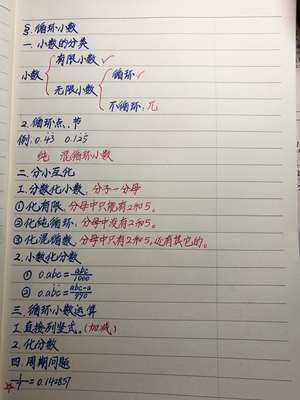 §. 循环小数
一. 小数的分类
有限小数 ✓
小数
循环 ✓
无限小数
不循环: 兀
2. 循环点、节
例: 0.4̇3̇ 0.12̇5̇
纯 混循环小数
二. 分小互化
1. 分数化小数: 分子÷分母
①化有限: 分母中只能有2和5。
②化纯循环: 分母中没有2和5。
③化混循环: 分母中只有2和5, 还有其它的。
2. 小数化分数
① 0.abc = abc/1000
② 0.aḃċ = abc-a/990
三. 循环小数运算
1. 直接列竖式。(加减)
2. 化分数
四. 周期问题
☆ 1/7 = 0.1̇42857̇